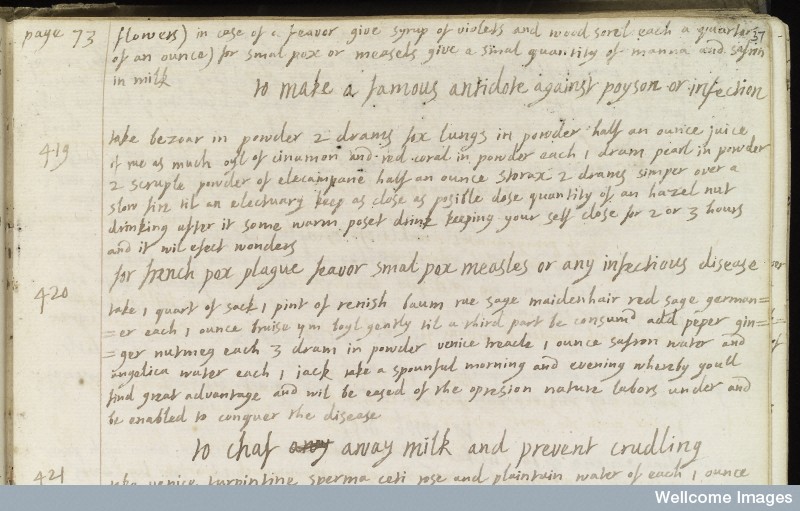 page 73
flowers) in case of a feavor give syrup of violets and wood sorel each a quarter 37
of an ounce) for smal pox or measels give a smal quantity of manna and safron
in milk
to make a famous antidote against poyson or infection
419
take bezoar in powder 2 drams fox lungs in powder half an ounce juice
of rue as much oyl of cinamon and red coral in powder each 1 dram pearl in powder
2 scruple powder of elecampane half an ounce storax 2 drams simper over a
slow fire til an electuary keep as close as posible dose quantity of an hazel nut
drinking after it some warm poset drink keeping your self close for 2 or 3 hours
and it wil efect wonders
for french pox plague feavor smal pox measles or any infectious disease
420
take 1 quart of sack 1 pint of renish baum rue sage maidenhair red sage german=
=er each 1 ounce bruise ym boyl gently til a third part be consumd add peper gin=
=ger nutmeg each 3 dram in powder venice treacle 1 ounce safron water and
angelica water each 1 jack take a spounful morning and evening whereby youll
find great advantage and wil be eased of the opresion nature labors under and
be enabled to conquer the disease
to chas away milk and prevent crudling
421
take venice turpintine sperma ceti rose and plaintain water of each 1 ounce
Wellcome Images